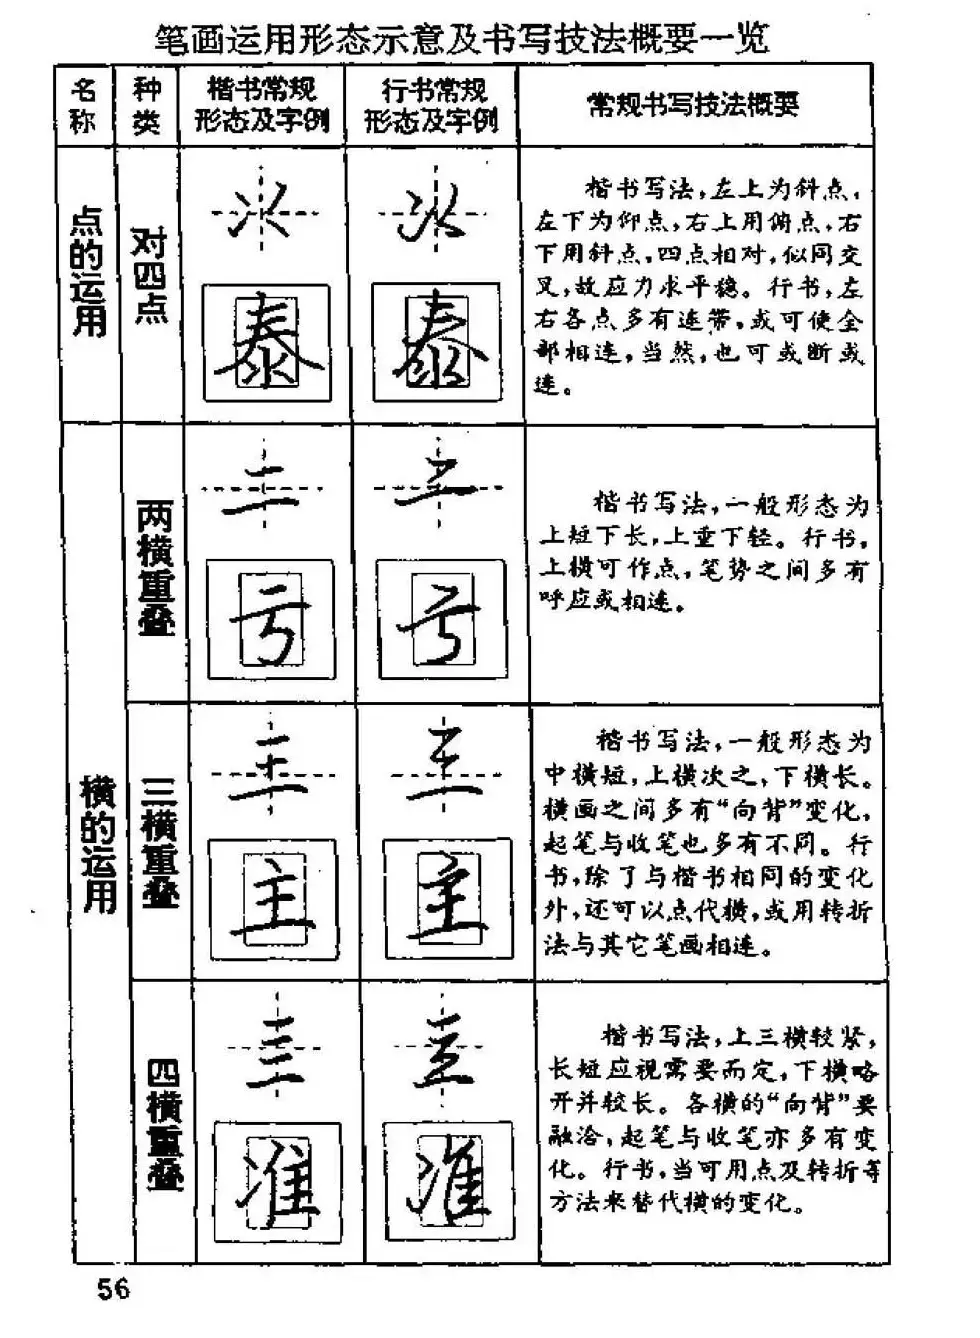 笔画运用形态示意及书写技法概要一览
名称
种类
楷书常规
形态及字例
行书常规
形态及字例
常规书写技法概要
点的运用
对四点
泰
泰
楷书写法，左上为斜点，
左下为仰点，右上用俯点，右
下用斜点，四点相对，似同交
叉，故应力求平稳。行书，左
右各点多有连带，或可使全
部相连，当然，也可或断或
连。
横的运用
两横重叠
二
亏
亏
楷书写法，一般形态为
上短下长，上重下轻。行书，
上横可作点，笔势之间多有
呼应或相连。
三横重叠
三
主
主
楷书写法，一般形态为
中横短，上横次之，下横长。
横画之间多有“向背”变化，
起笔与收笔也多有不同。行
书，除了与楷书相同的变化
外，还可以点代横，或用转折
法与其它笔画相连。
四横重叠
准
准
楷书写法，上三横较紧，
长短应视需要而定，下横略
开并较长。各横的“向背”要
融洽，起笔与收笔亦多有变
化。行书，当可用点及转折等
方法来替代横的变化。
56